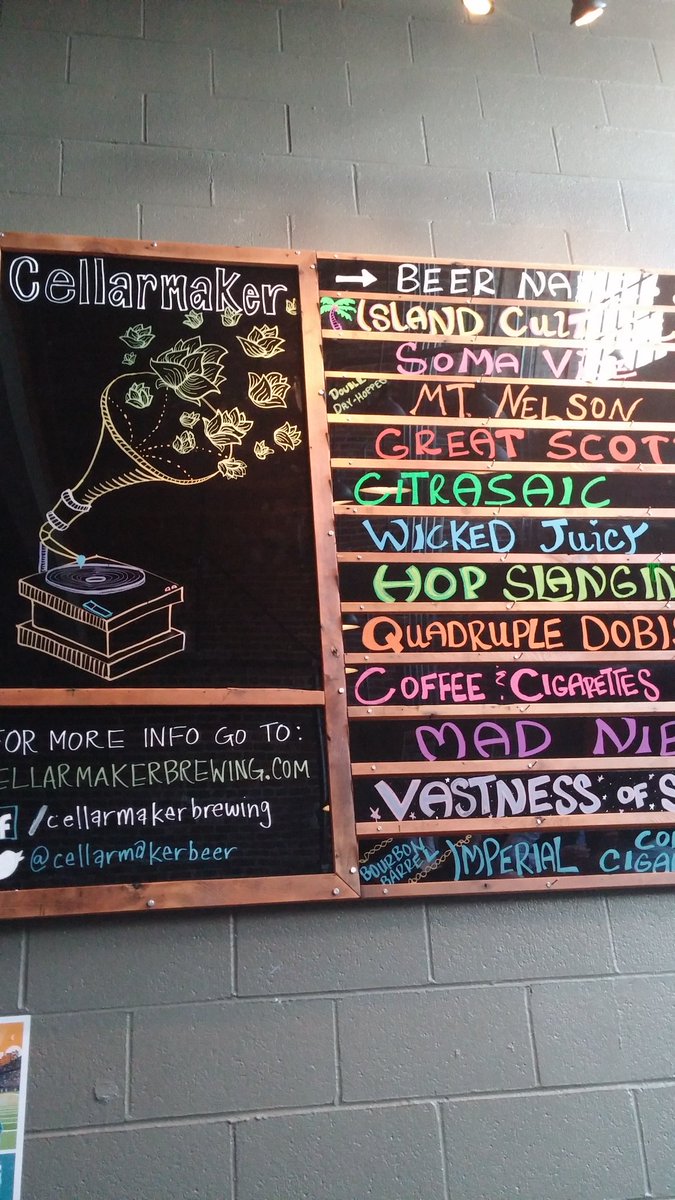 Cellarmaker
FOR MORE INFO GO TO:
ELLARMAKERBREWING.COM
/cellarmakerbrewing
@cellarmakerbeer
→ BEER NA
ISLAND CULT
SOMA
DOUBLE DRY-HOPPED
MT. NELSON
GREAT SCOT
CITRASAIC
WICKED JUICY
HOP SLANGIN
QUADRUPLE DOBIS
COFFEE & CIGARETTES
MAD NIB
VASTNESS OF S
BOURBON BARREL IMPERIAL CO
CIGA